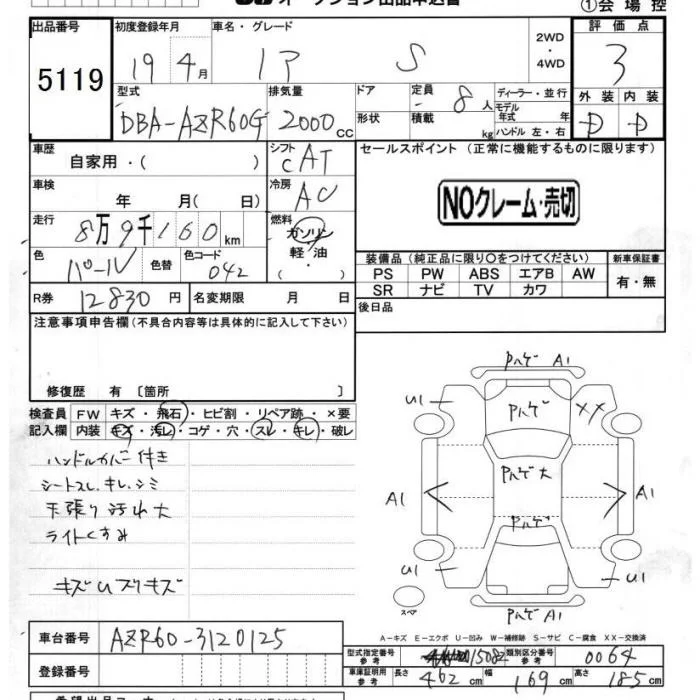 オークション出品申込書
①会場控
出品番号 初度登録年月 車名・グレード 2WD ・ 4WD 評価点
5119 19 4月 S 3
型式 排気量 ドア 定員 8人 ディーラー・並行 外装 内装
DBA-AZR60G 2000cc 形状 積載 kg モデル年式 年 ハンドル 左・右 D D
車歴 シフト セールスポイント (正常に機能するものに限ります)
自家用・( ) CAT
車検 冷房
年 月( 日) AC
NOクレーム・売切
走行 燃料
8万9千160km ガソリン
軽油
( ・ )
色 色替 色コード
パール 042
装備品(純正品に限り○をつけてください) 新車保証書
PS PW ABS エアB AW 有・無
SR ナビ TV カワ
R券 12830円 名変期限 月 日
後日品
注意事項申告欄(不具合内容等は具体的に記入して下さい)
修復歴 有 〔箇所 〕
検査員 FW キズ・飛石・ヒビ割・リペア跡・×要
記入欄 内装 キズ・汚レ・コゲ・穴・スレ・キレ・破レ
ハンドルカバー付き
シートスレ.キレ.シミ
天張り汚れ大
ライトくすみ
キズUズリキズ
Pハゲ A1
U1
Pハゲ
XX
Pハゲ大
A1
A1
Pハゲ
U1
U1
Pハゲ A1
スペア
A-キズ E-エクボ U-凹み W-補修跡 S-サビ C-腐食 XX-交換済
車台番号 AZR60-3120125
型式指定番号 参考 15082 類別区分番号 参考 0064
登録番号
車庫証明用 参考 長さ 462cm 幅 169cm 高さ 185cm